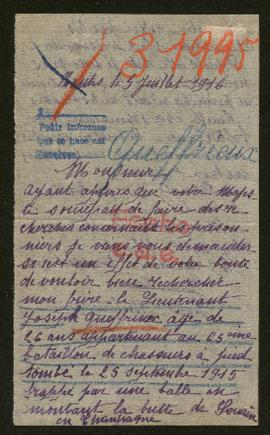 31995
le 5 Juillet 1916
Pedir informes
que se hace así
Queffrieux
Monsieur
ayant appris que votre Majesté
se souciant de faire des re-
cherches concernant les prison-
niers je vous demander
si est un effet de votre bonté
de vouloir bien rechercher
mon frère le Lieutenant
Joseph âge de
26 ans appartenant au 65 ième
bataillon de chasseurs à pied
tombé le 25 septembre 1915
frappé par une balle en
montant la butte de Souain
en Champagne